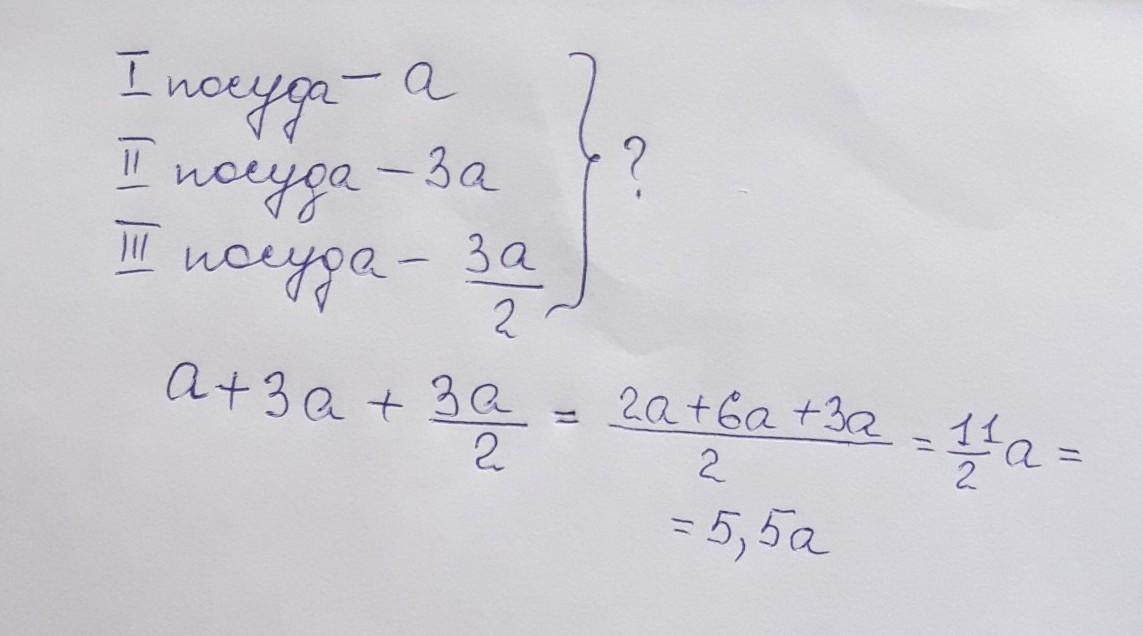 I посуда - a
II посуда - 3a
III посуда - 3a/2
} ?
a + 3a + 3a/2 = (2a+6a+3a)/2 = 11/2 a =
= 5,5a